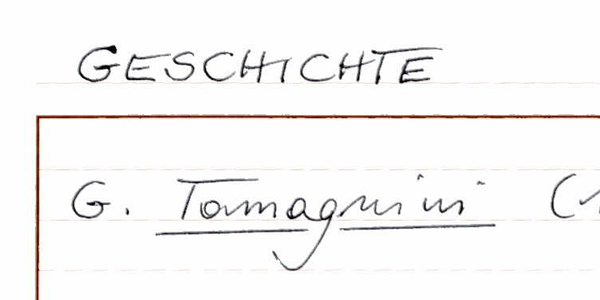 GESCHICHTE
G. Tamagnini (